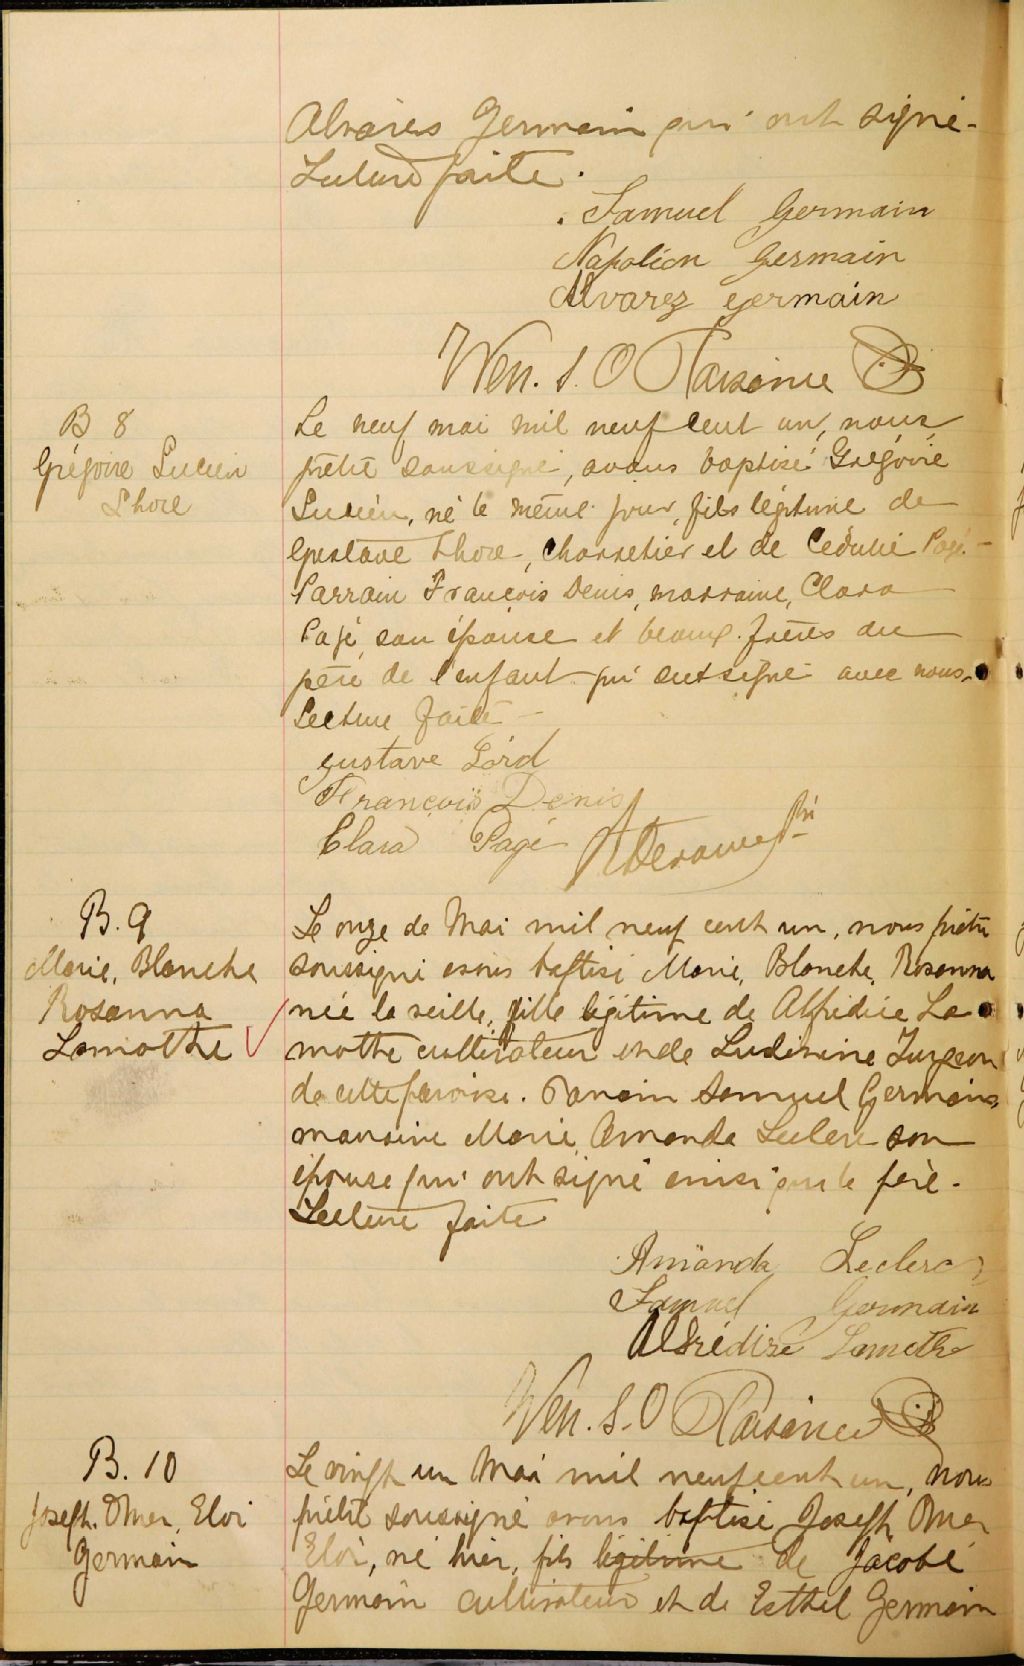 Alvarès Germain qui ont signé.
Lecture faite.
Samuel Germain
Napoléon Germain
Alvarez germain
Wen. S. O Plaisance
B 8
Grégoire Lucien
Lhore
Le neuf mai mil neuf cent un, nous
prêtre soussigné, avons baptisé Grégoire
Lucien, né le même jour, fils légitime de
Gustave Lhore, charretier et de Cédulie Pagé.
Parrain François Denis, marraine, Clara
Pagé, son épouse et beaux-frères du
père de l'enfant qui ont signé avec nous.
Lecture faite
gustave Lord
François Denis
Clara Pagé
ptr
B. 9
Marie, Blanche
Rosanna
Lamothe
Le onze de Mai mil neuf cent un, nous prêtre
soussigné avons baptisé Marie, Blanche, Rosanna
née la veille, fille légitime de Alfrédice La
mothe cultivateur et de Ludivine Turgeon
de cette paroisse. Parrain Samuel Germain,
marraine Marie Amanda Leclerc son
épouse qui ont signé ainsi que le père.
Lecture faite
Amanda Leclerc
Samuel Germain
Alfrédise Lamothe
Wen. S. O Plaisance
B. 10
Joseph, Omer, Eloi
Germain
Le vingt un Mai mil neuf cent un, nous
prêtre soussigné avons baptisé Joseph, Omer
Eloi, né hier, fils légitime de Jacobé
Germain cultivateur et de Esthel Germain